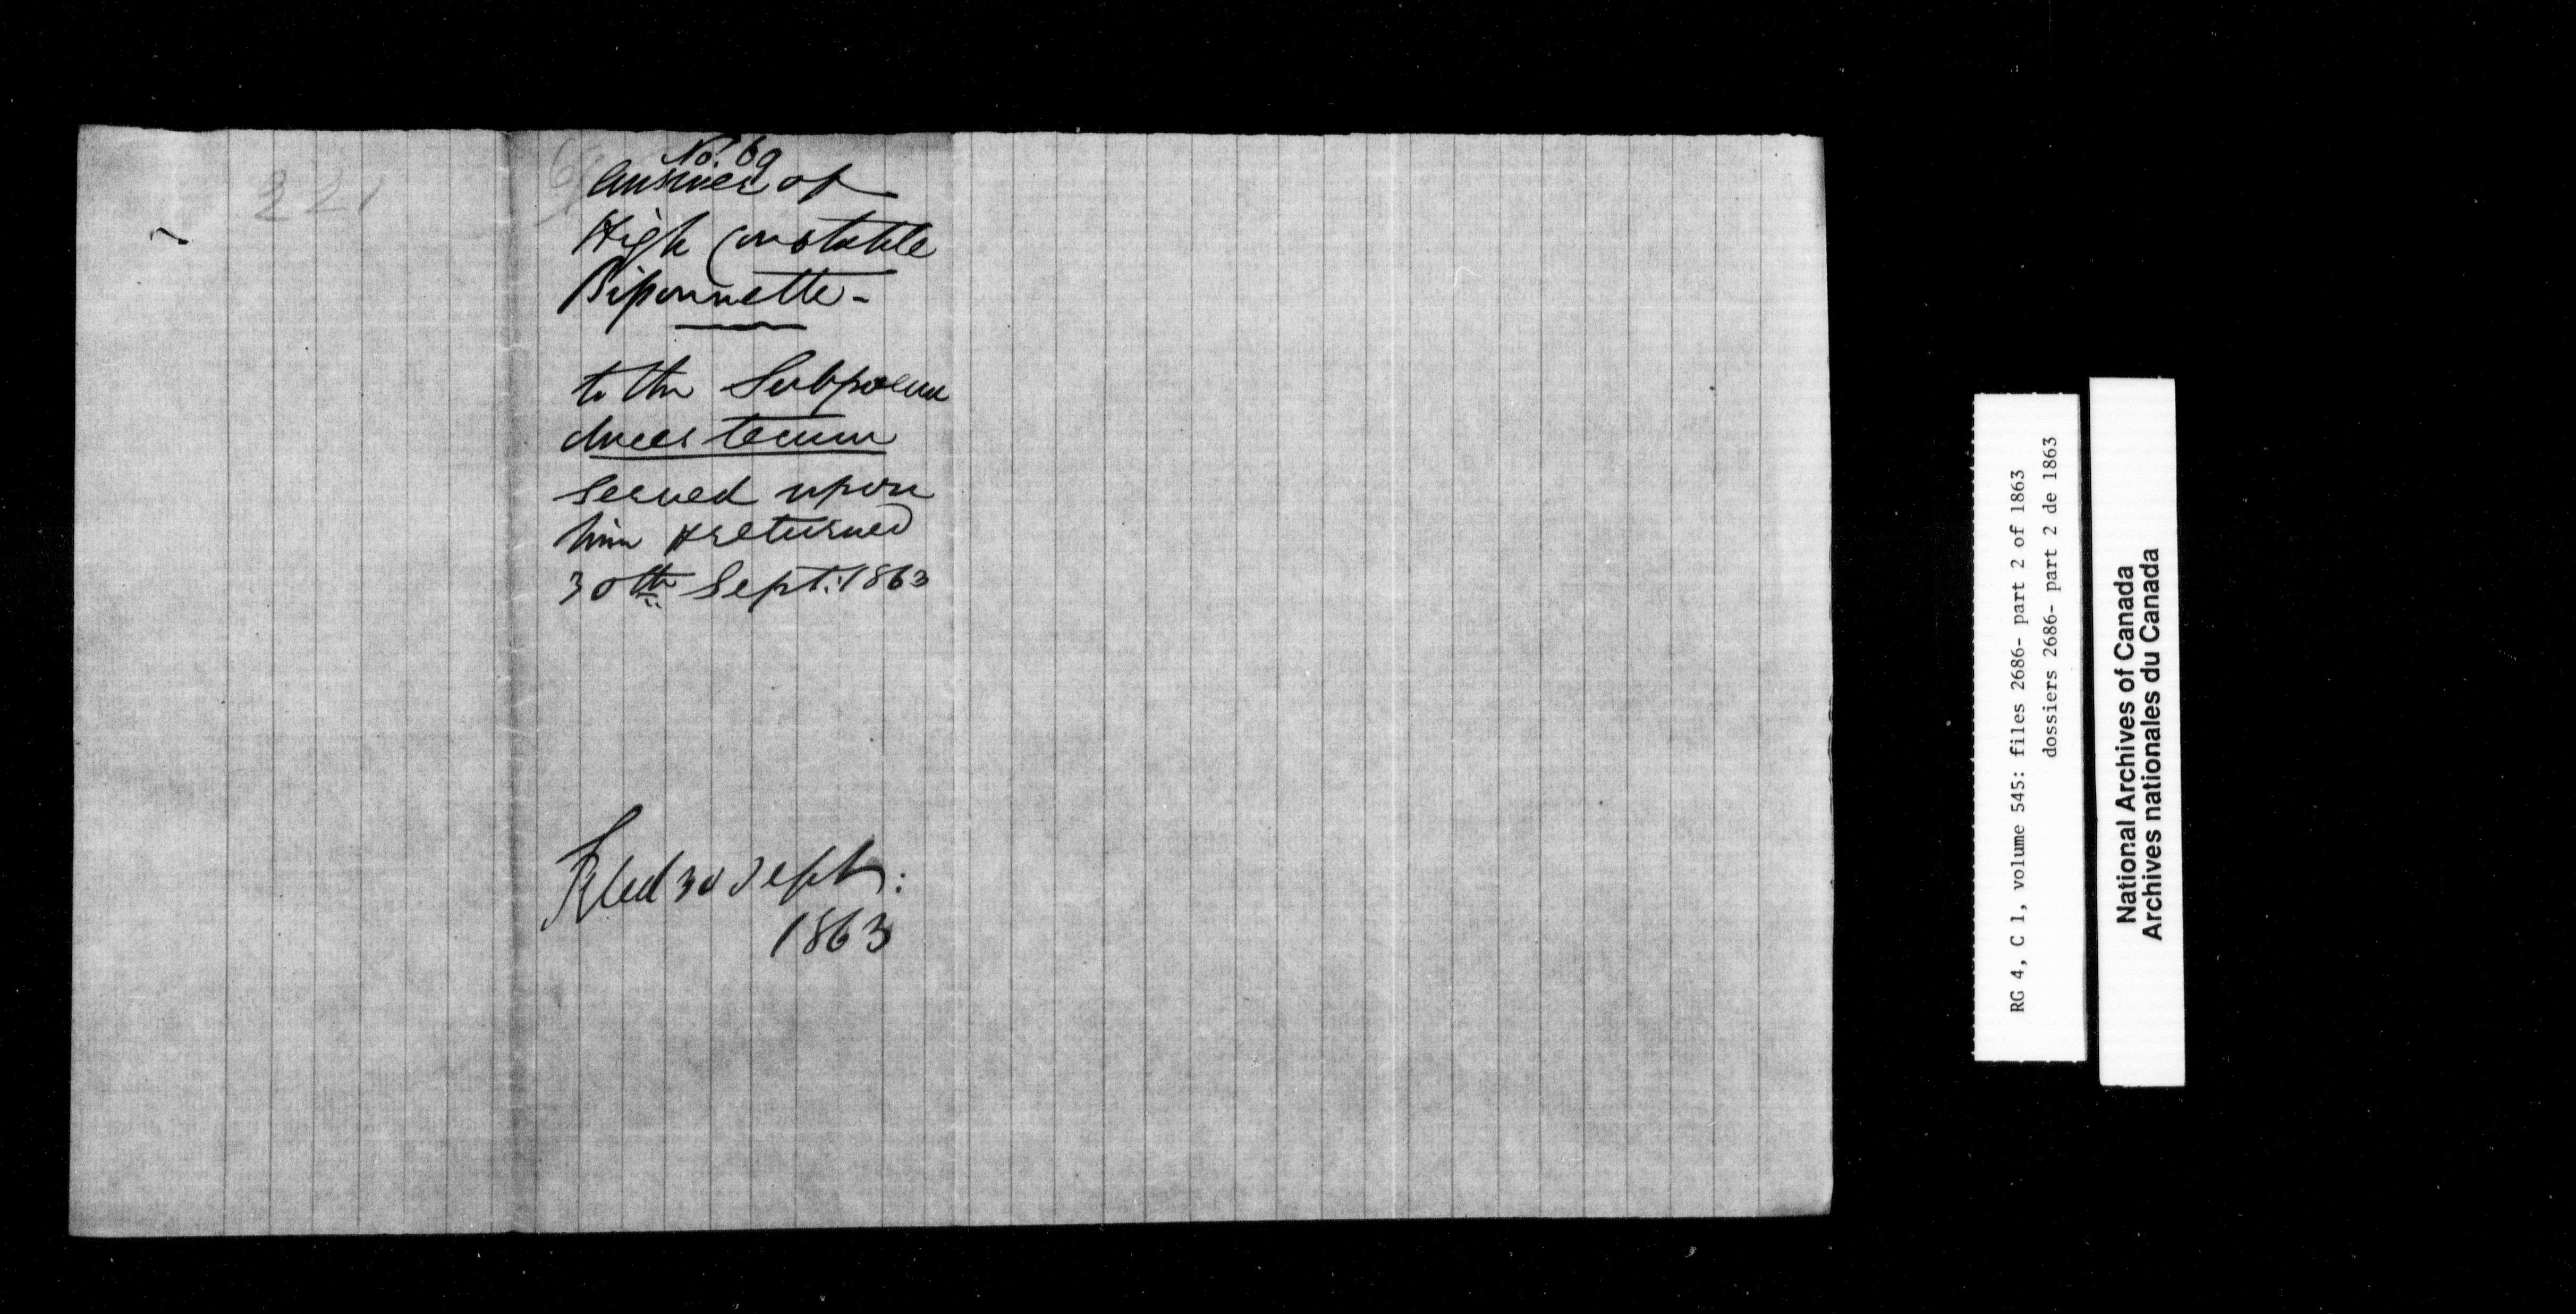 221
No. 69
Answer of
High Constable
Bissonnette -
to the Subpoena
duces tecum
served upon
him & returned
30th Sept: 1863
Filed 30 Sept:
1863
RG 4, C 1, volume 545: files 2686- part 2 of 1863
dossiers 2686- part 2 de 1863
National Archives of Canada
Archives nationales du Canada